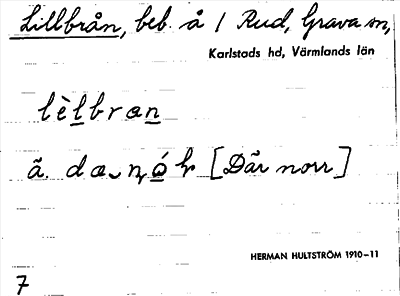 Lillbrån, beb. å 1 Rud, Grava sn,
Karlstads hd, Värmlands län
lèlbran
ã. dœ ̮ nó̱r [Där norr]
HERMAN HULTSTRÖM 1910–11
7